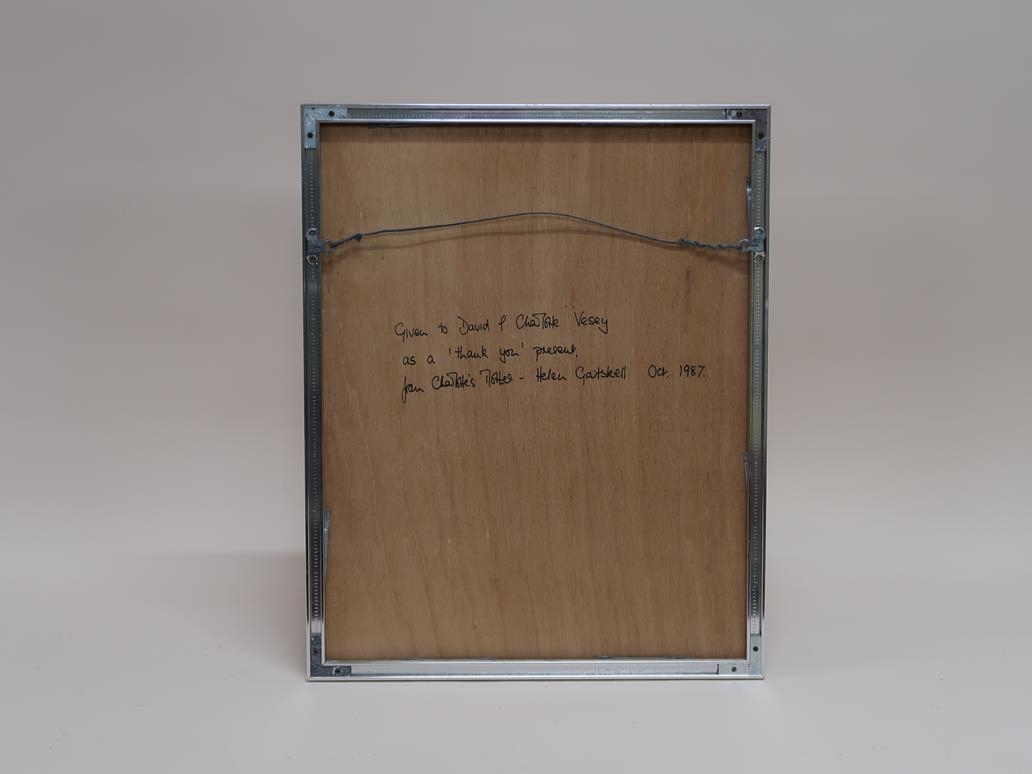 Given to David & Charlotte Vesey
as a 'thank you' present,
from Charlotte's Mother - Helen Gaitskell Oct. 1987.